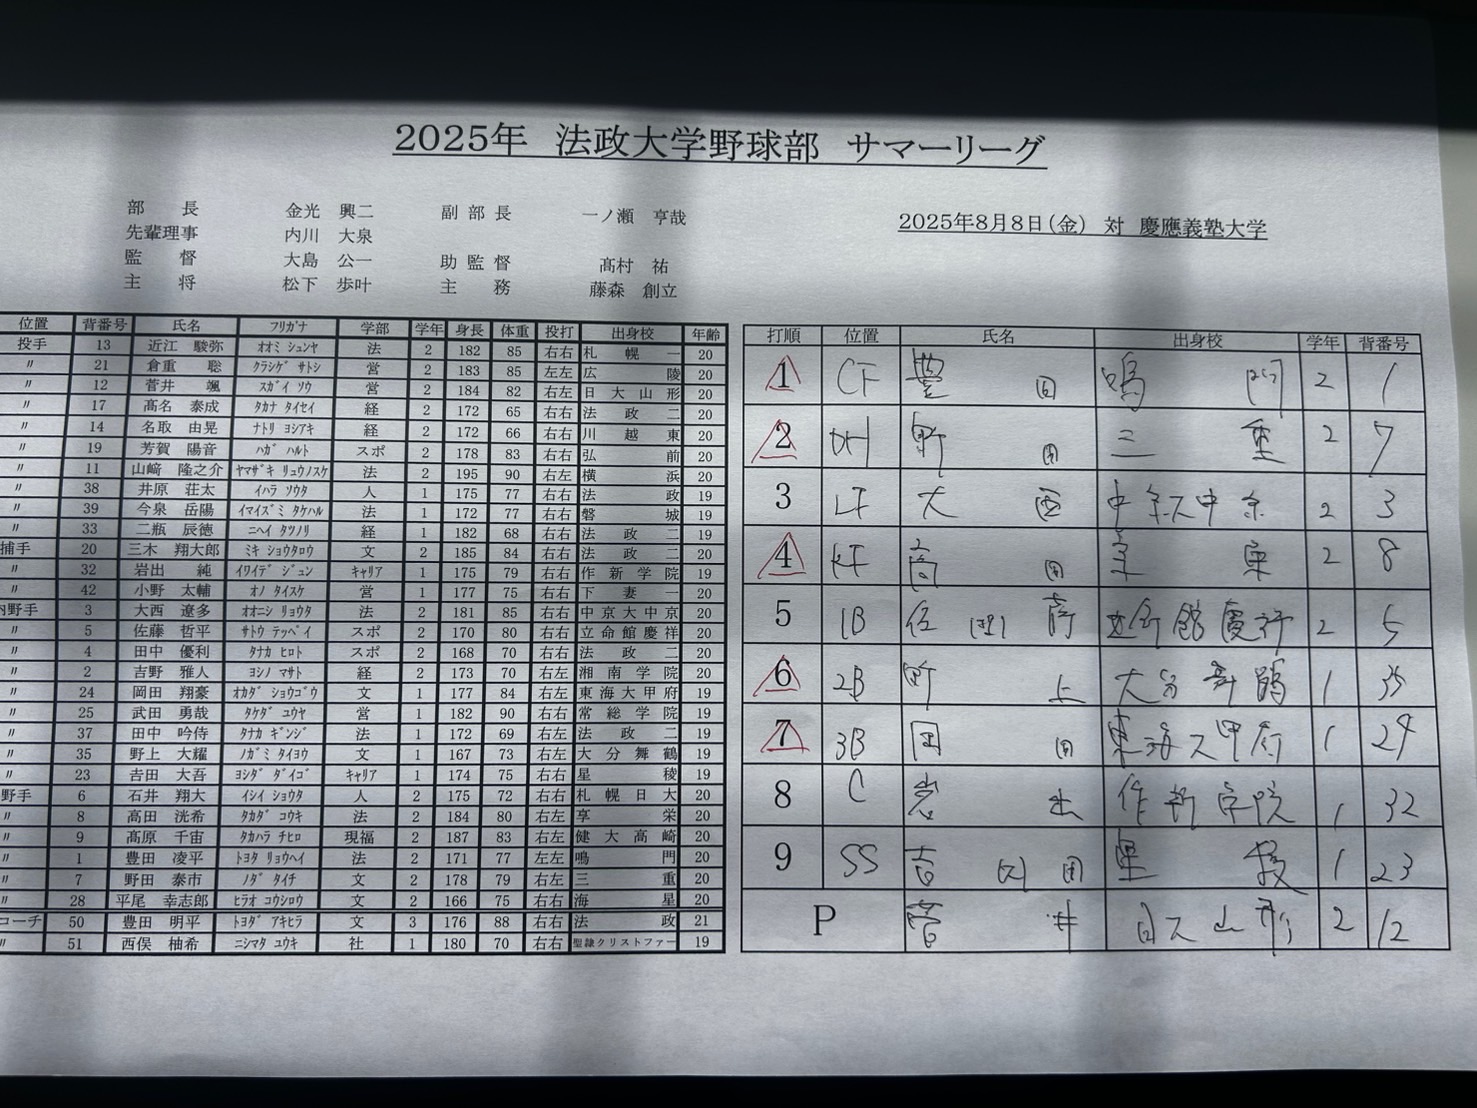 2025年 法政大学野球部 サマーリーグ
部長 金光 興二 副部長 一ノ瀬 亨哉
先輩理事 内川 大泉
監督 大島 公一 助監督 髙村 祐
主将 松下 歩叶 主務 藤森 創立
2025年8月8日(金) 対 慶應義塾大学
位置 背番号 氏名 フリガナ 学部 学年 身長 体重 投打 出身校 年齢
投手 13 近江 駿弥 オオミ シュンヤ 法 2 182 85 右右 札幌一 20
〃 21 倉重 聡 クラシゲ サトシ 営 2 183 85 左左 広陵 20
〃 12 菅井 颯 スガイ ソウ 営 2 184 82 右左 日大山形 20
〃 17 髙名 泰成 タカナ タイセイ 経 2 172 65 右右 法政二 20
〃 14 名取 由晃 ナトリ ヨシアキ 経 2 172 66 右右 川越東 20
〃 19 芳賀 陽音 ハガ ハルト スポ 2 178 83 右右 弘前 20
〃 11 山﨑 隆之介 ヤマザキ リュウノスケ 法 2 195 90 右左 横浜 20
〃 38 井原 荘太 イハラ ソウタ 人 1 175 77 右右 法政 19
〃 39 今泉 岳陽 イマイズミ タケハル 法 1 172 77 右右 磐城 19
〃 33 二瓶 辰徳 ニヘイ タツノリ 経 1 182 68 右右 法政二 19
捕手 20 三木 翔大郎 ミキ ショウタロウ 文 2 185 84 右右 法政二 20
〃 32 岩出 純 イワイデ ジュン キャリア 1 175 79 右右 作新学院 19
〃 42 小野 太輔 オノ タイスケ 営 1 177 75 右右 下妻一 20
内野手 3 大西 遼多 オオニシ リョウタ 法 2 181 85 右右 中京大中京 20
〃 5 佐藤 哲平 サトウ テッペイ スポ 2 170 80 右右 立命館慶祥 20
〃 4 田中 優利 タナカ ヒロト スポ 2 168 70 右右 法政二 20
〃 2 吉野 雅人 ヨシノ マサト 経 2 173 70 右左 湘南学院 20
〃 24 岡田 翔豪 オカダ ショウゴウ 文 1 177 84 右左 東海大甲府 19
〃 25 武田 勇哉 タケダ ユウヤ 営 1 182 90 右右 常総学院 19
〃 37 田中 吟侍 タナカ ギンジ 法 1 172 69 右左 法政二 19
〃 35 野上 大耀 ノガミ タイヨウ 文 1 167 73 右左 大分舞鶴 19
〃 23 吉田 大吾 ヨシダ ダイゴ キャリア 1 174 75 右右 星稜 19
野手 6 石井 翔大 イシイ ショウタ 人 2 175 72 右右 札幌日大 20
〃 8 高田 洸希 タカダ コウキ 法 2 184 80 右左 享栄 20
〃 9 髙原 千宙 タカハラ チヒロ 現福 2 187 83 右左 健大高崎 20
〃 1 豊田 凌平 トヨタ リョウヘイ 法 2 171 77 左左 鳴門 20
〃 7 野田 泰市 ノダ タイチ 文 2 178 79 右左 三重 20
〃 28 平尾 幸志郎 ヒラオ コウシロウ 文 2 166 75 右左 海星 20
コーチ 50 豊田 明平 トヨダ アキヒラ 文 3 176 88 右右 法政 21
〃 51 西俣 柚希 ニシマタ ユウキ 社 1 180 70 右右 聖隷クリストファー 19
打順 位置 氏名 出身校 学年 背番号
1 CF 豊田 鳴門 2 1
2 DH 野田 三重 2 7
3 LF 大西 中京大中京 2 3
4 RF 高田 享栄 2 8
5 1B 佐(哲)藤 立命館慶祥 2 5
6 2B 野上 大分舞鶴 1 35
7 3B 岡田 東海大甲府 1 24
8 C 岩出 作新学院 1 32
9 SS 吉田 星稜 1 23
P 菅井 日大山形 2 12